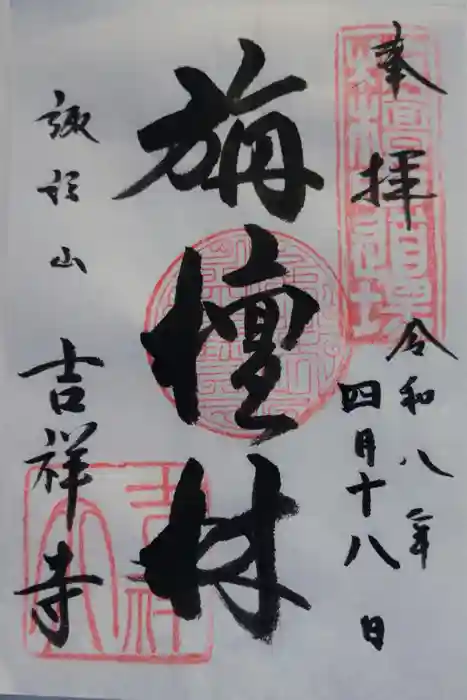 奉拝
令和八年
四月十八日
旃檀林
諏訪山 吉祥寺